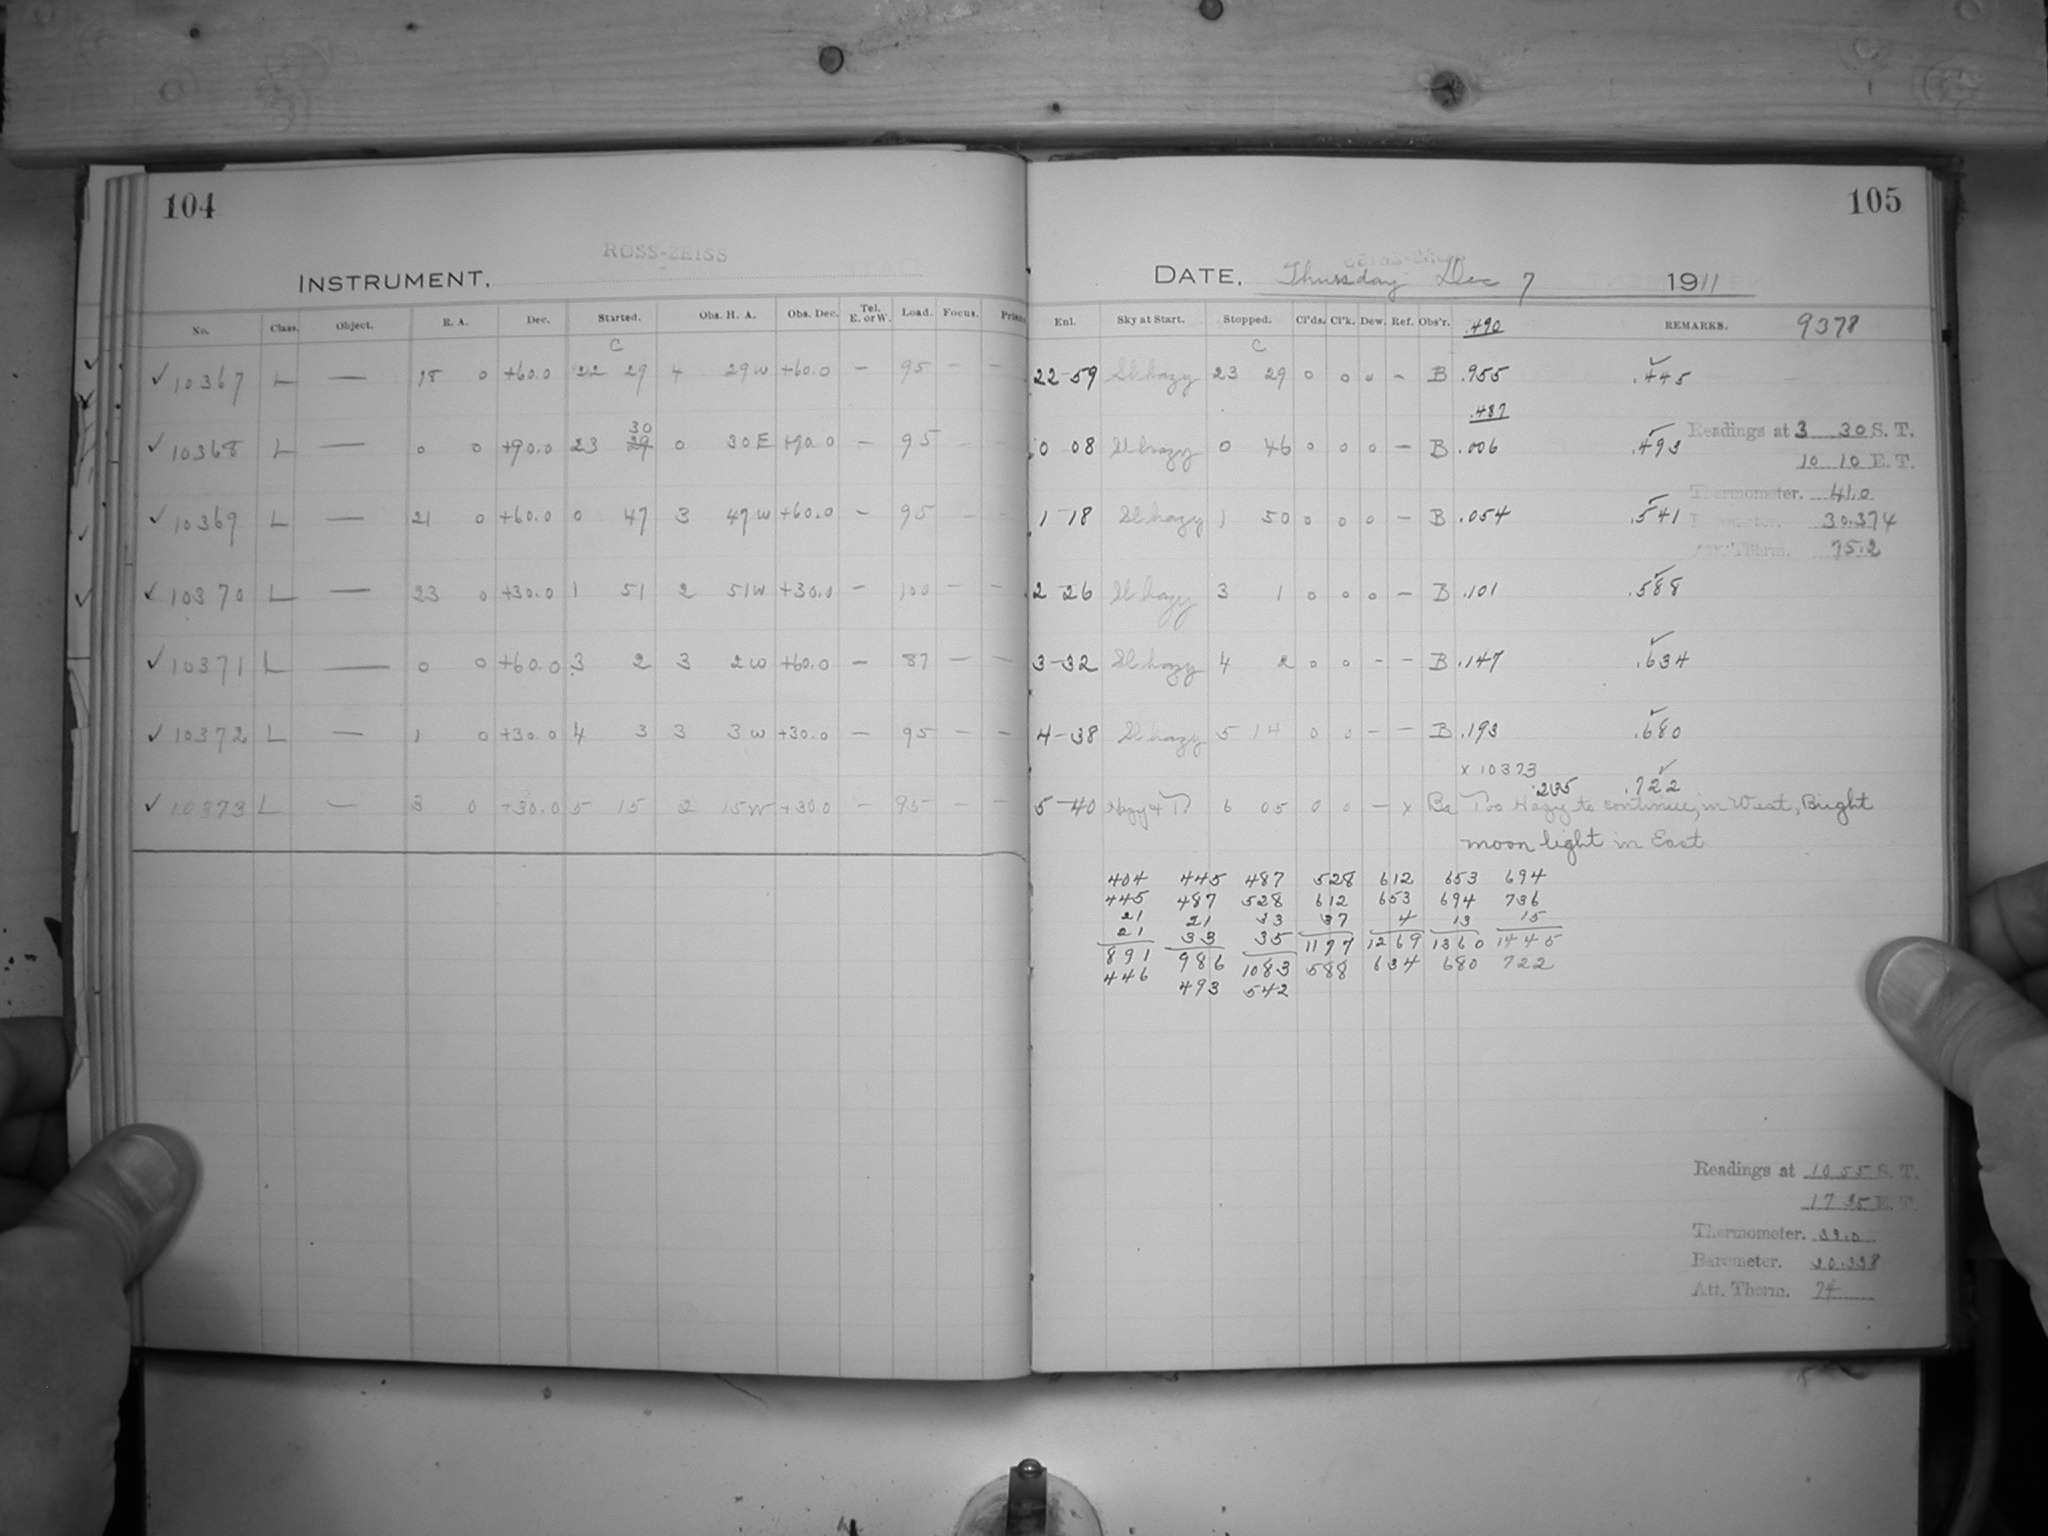 104
ROSS-ZEISS
INSTRUMENT,
No. Class. Object. R. A. Dec. Started. Obs. H. A. Obs. Dec. Tel. E. or W. Load. Focus. Prism
C
✓ 10367 L — 18 0 +60.0 22 29 4 29 W +60.0 — 95 — —
30
✓ 10368 L — 0 0 +90.0 23 29 0 30 E +90.0 — 95 — —
✓ 10369 L — 21 0 +60.0 0 47 3 47 W +60.0 — 95 — —
✓ 10370 L — 23 0 +30.0 1 51 2 51 W +30.0 — 100 — —
✓ 10371 L — 0 0 +60.0 3 2 3 2 W +60.0 — 87 — —
✓ 10372 L — 1 0 +30.0 4 3 3 3 W +30.0 — 95 — —
✓ 10373 L — 3 0 +30.0 5 15 2 15 W +30.0 — 95 — —
105
DATE, Thursday Dec 7 1911
Enl. Sky at Start. Stopped. Cl'ds. Cl'k. Dew. Ref. Obs'r. .490 REMARKS. 9378
C
22-59 Sl hazy 23 29 0 0 0 – B .955 .445
.487
0 08 Sl hazy 0 46 0 0 0 – B .006 .493
Readings at 3 30 S. T.
10 10 E. T.
Thermometer. 41.0
1-18 Sl hazy 1 50 0 0 0 – B .054 .541
Barometer. 30.374
Att. Therm. 75.2
2 26 Sl hazy 3 1 0 0 0 – B .101 .588
3-32 Sl hazy 4 2 0 0 – – B .147 .634
4-38 Sl hazy 5 14 0 0 – – B .193 .680
x 10373
.235 .722
5-40 Hazy & T. 6 05 0 0 – x Ba Too Hazy to continue, in West, Bright
moon light in East
404 445 487 528 612 653 694
445 487 528 612 653 694 736
21 21 33 37 4 13 15
21 33 35 1177 1269 1360 1445
891 986 1083 588 634 680 722
446 493 542
Readings at 10 55 S. T.
17 35 E. T.
Thermometer. 39.0
Barometer. 30.338
Att. Therm. 74